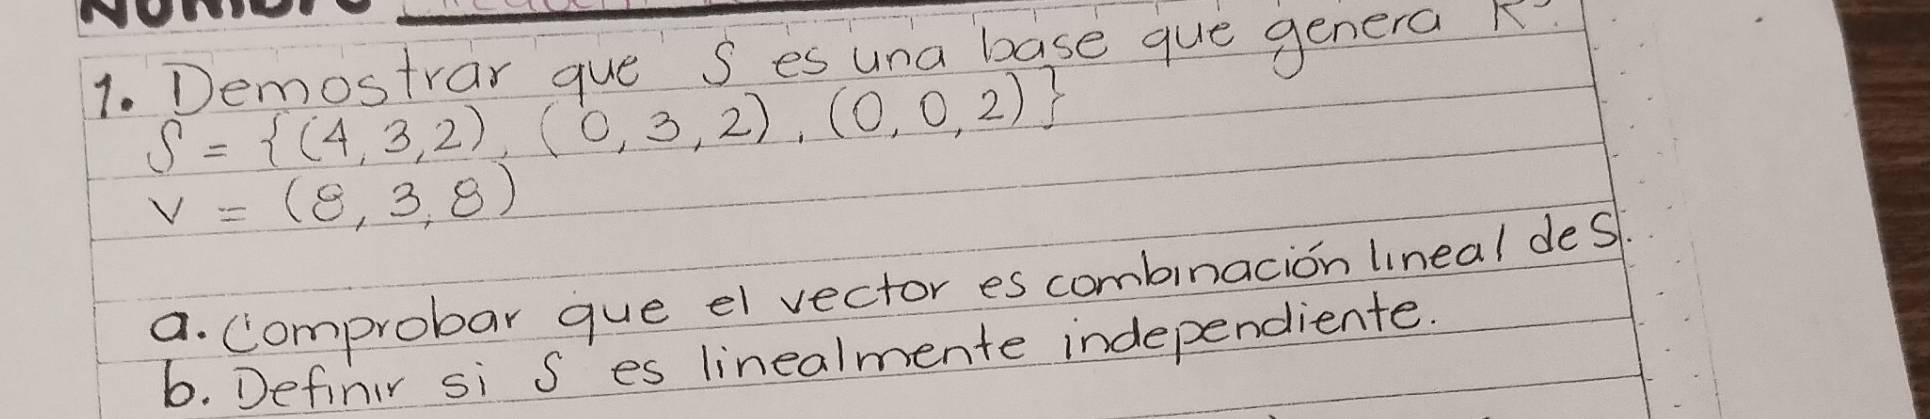 1. Demostrar que S es una base que genera R³.
S = {(4,3,2), (0,3,2), (0,0,2)}
V = (8,3,8)
a. Comprobar que el vector es combinación lineal de S.
b. Definir si S es linealmente independiente.